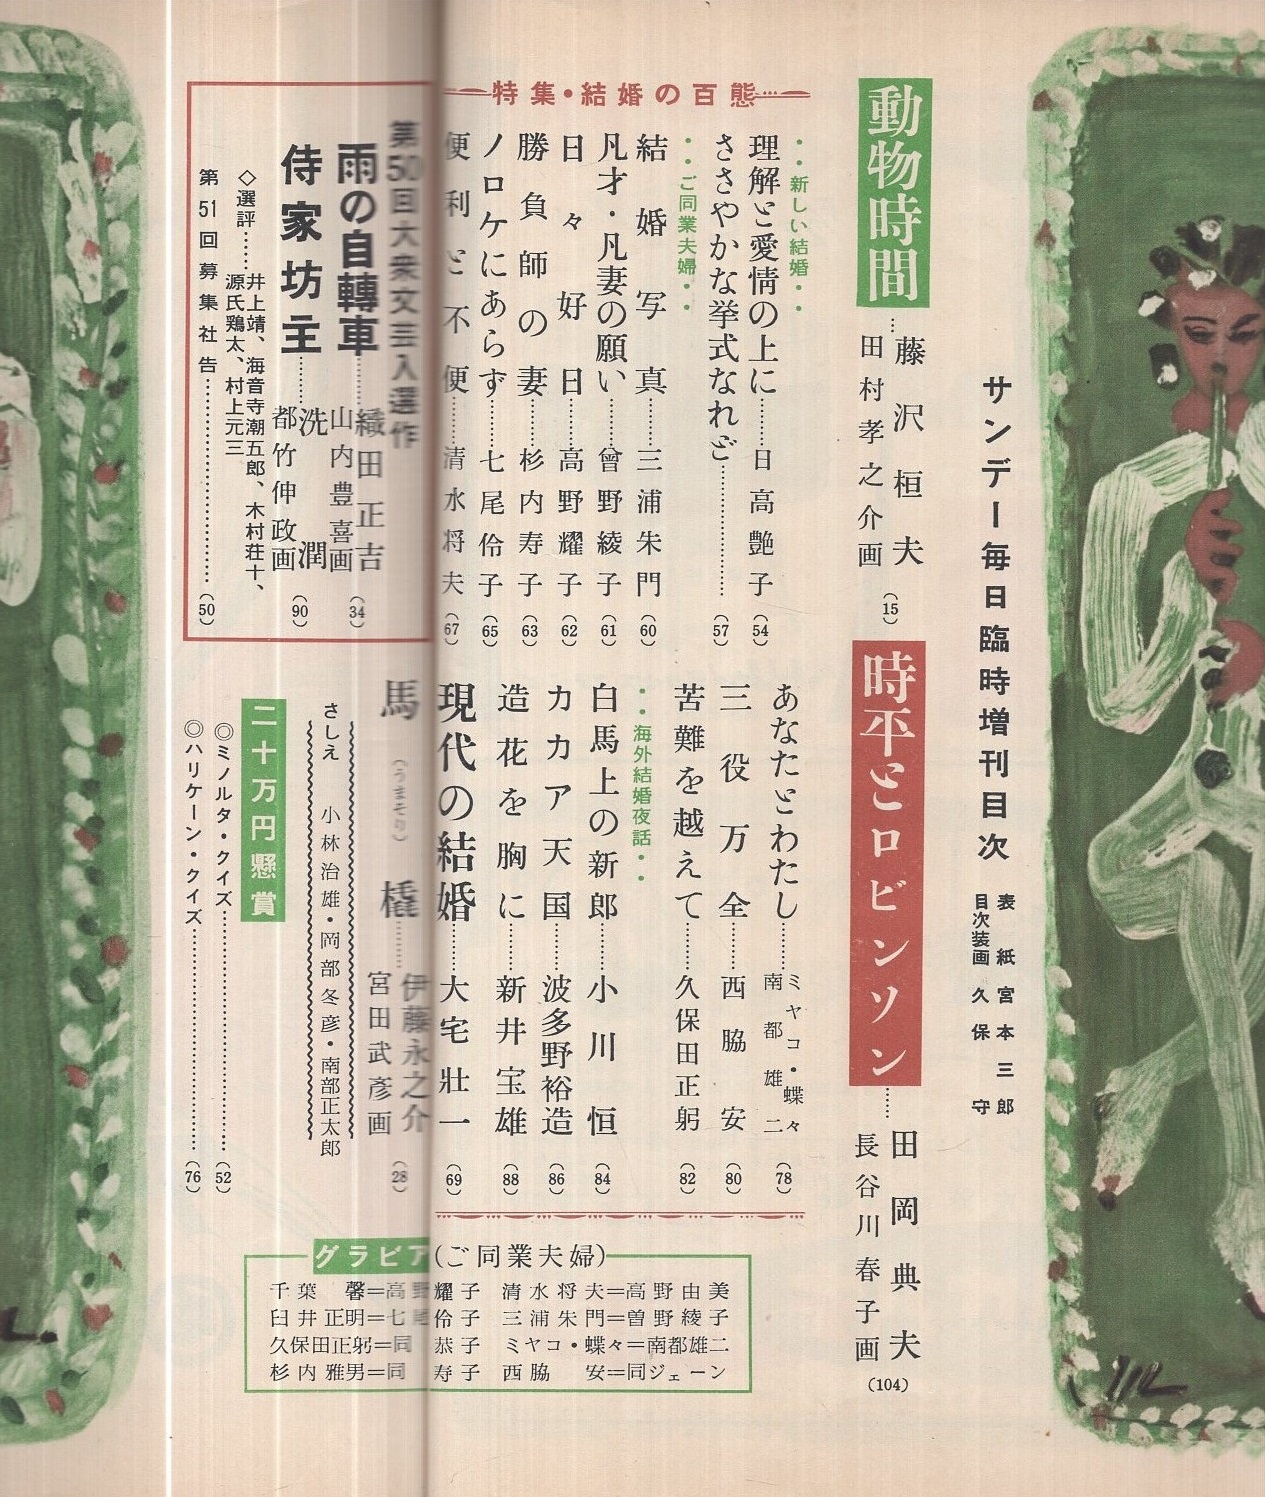 サンデー毎日臨時増刊目次
表紙 宮本三郎
目次装画 久保守
動物時間……藤沢桓夫
田村孝之介画
(15)
時平とロビンソン……田岡典夫
長谷川春子画
(104)
特集・結婚の百態
・・新しい結婚・・
理解と愛情の上に……日高艶子(54)
ささやかな挙式なれど……(57)
・・ご同業夫婦・・
結婚写真……三浦朱門(60)
凡才・凡妻の願い……曾野綾子(61)
日々好日……高野耀子(62)
勝負師の妻……杉内寿子(63)
ノロケにあらず……七尾伶子(65)
便利と不便……清水将夫(67)
あなたとわたし……ミヤコ・蝶々
南都雄二
(78)
三役万全……西脇安(80)
苦難を越えて……久保田正躬(82)
・・海外結婚夜話・・
白馬上の新郎……小川恒(84)
カカア天国……波多野裕造(86)
造花を胸に……新井宝雄(88)
現代の結婚……大宅壮一(69)
第50回大衆文芸入選作
雨の自轉車……織田正吉
山内豊喜画
(34)
侍家坊主……洗潤
都竹伸政画
(90)
◇選評……井上靖、海音寺潮五郎、木村荘十、
源氏鶏太、村上元三
第51回募集社告……(50)
馬橇(うまそり)……伊藤永之介
宮田武彦画
(28)
さしえ 小林治雄・岡部冬彦・南部正太郎
二十万円懸賞
◎ミノルタ・クイズ……(52)
◎ハリケーン・クイズ……(76)
グラビア(ご同業夫婦)
千葉馨=高野耀子 清水将夫=高野由美
臼井正明=七尾伶子 三浦朱門=曽野綾子
久保田正躬=同恭子 ミヤコ・蝶々=南都雄二
杉内雅男=同寿子 西脇安=同ジェーン